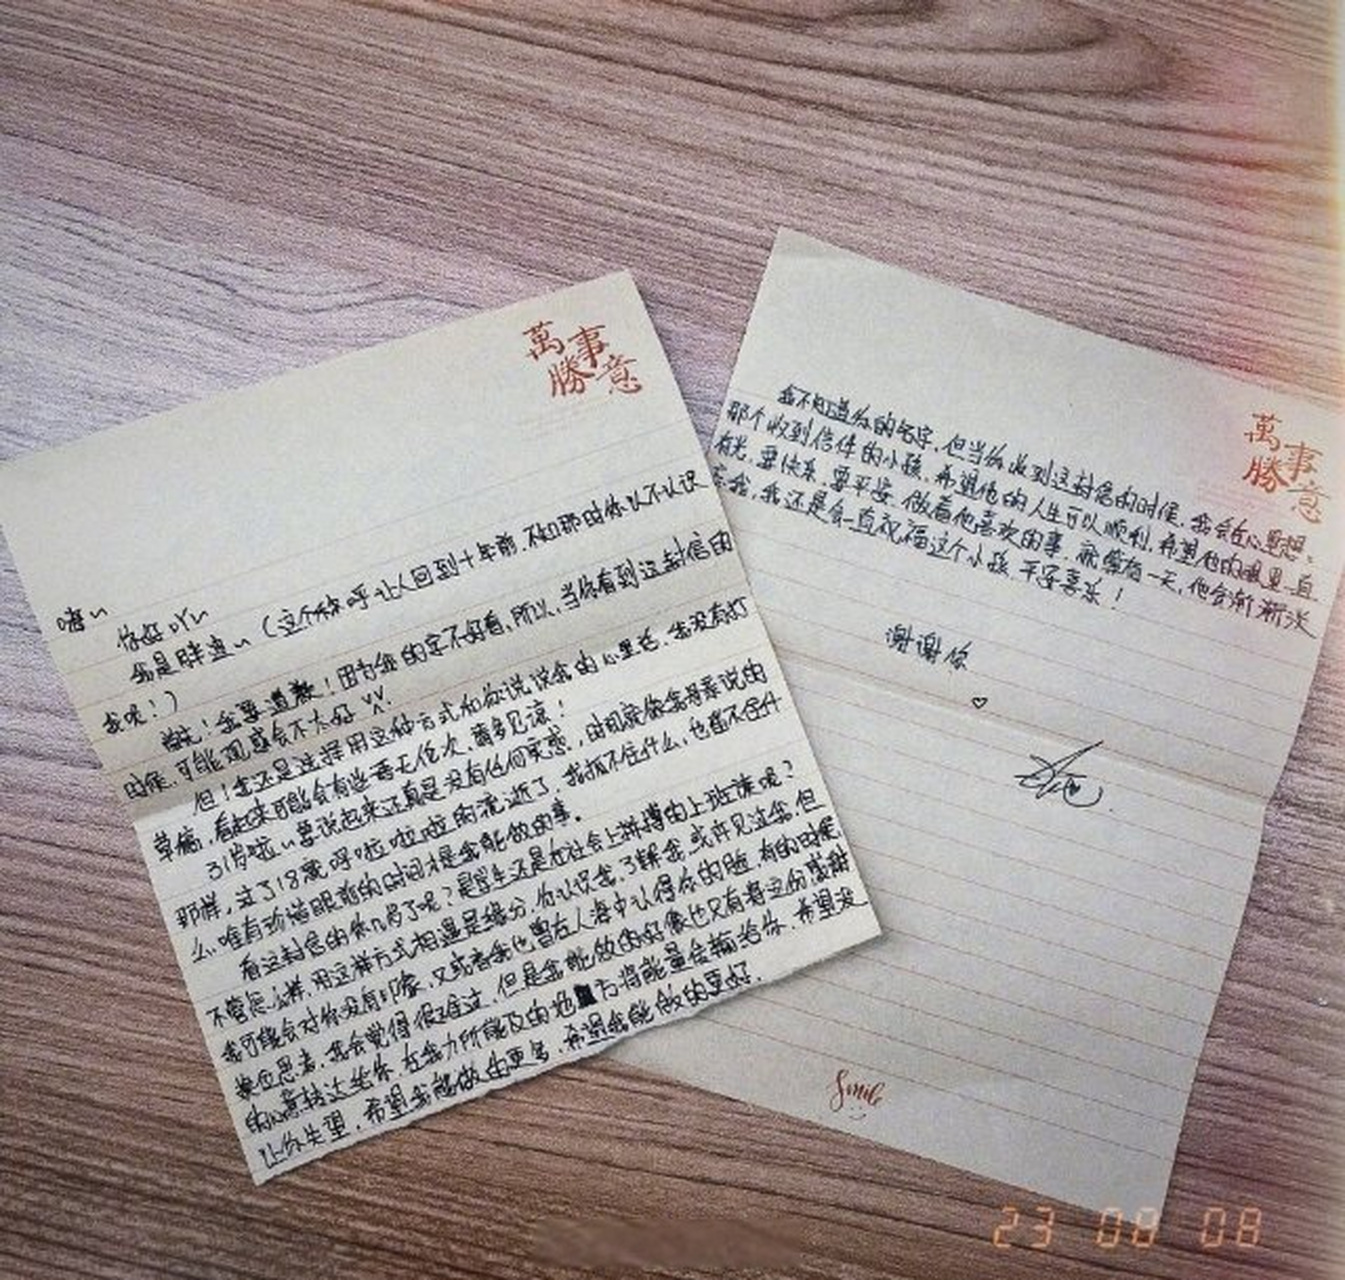 萬事
勝意
嗨~
你好吖~
我是胖迪~（这个称呼让人回到十年前，不知那时你认不认识
我呢！）
首先！我要道歉！因为我的字不好看，所以，当你看到这封信的
时候，可能观感会不太好
但！我还是选择用这种方式和你说说我的心里话，我没有打
草稿，看起来可能会有些语无伦次，请多见谅！
31岁啦~要说起来还真是没有任何实感，时间就像我哥哥说的
那样，过了18岁呼啦啦啦的流逝了，我抓不住什么，也留不住什
么，唯有珍惜眼前的时间才是我能做的事。
看这封信的你几岁了呢？是学生还是在社会上拼搏的上班族呢？
不管怎么样，用这样方式相遇是缘分，你认识我，了解我，或许见过我，但
我可能会对你没有印象，又或者我也曾在人海中认得你的脸，有的时候
换位思考，我会觉得很难过，但是我能做的好像也只有将这份感谢
的心意转达给你，在我力所能及的地方将能量传输给你，希望没
让你失望，希望我能做的更多，希望我能做的更好。
萬事
勝意
我不知道你的名字，但当你收到这封信的时候，我会在心里想：
那个收到信件的小孩，希望他的人生可以顺利，希望他的眼里一直
有光，要快乐，要平安，做着他喜欢的事，就算有一天，他会渐渐淡
忘我，我还是会一直祝福这个小孩，平安喜乐！
谢谢你
♡
Smile
23 08 08